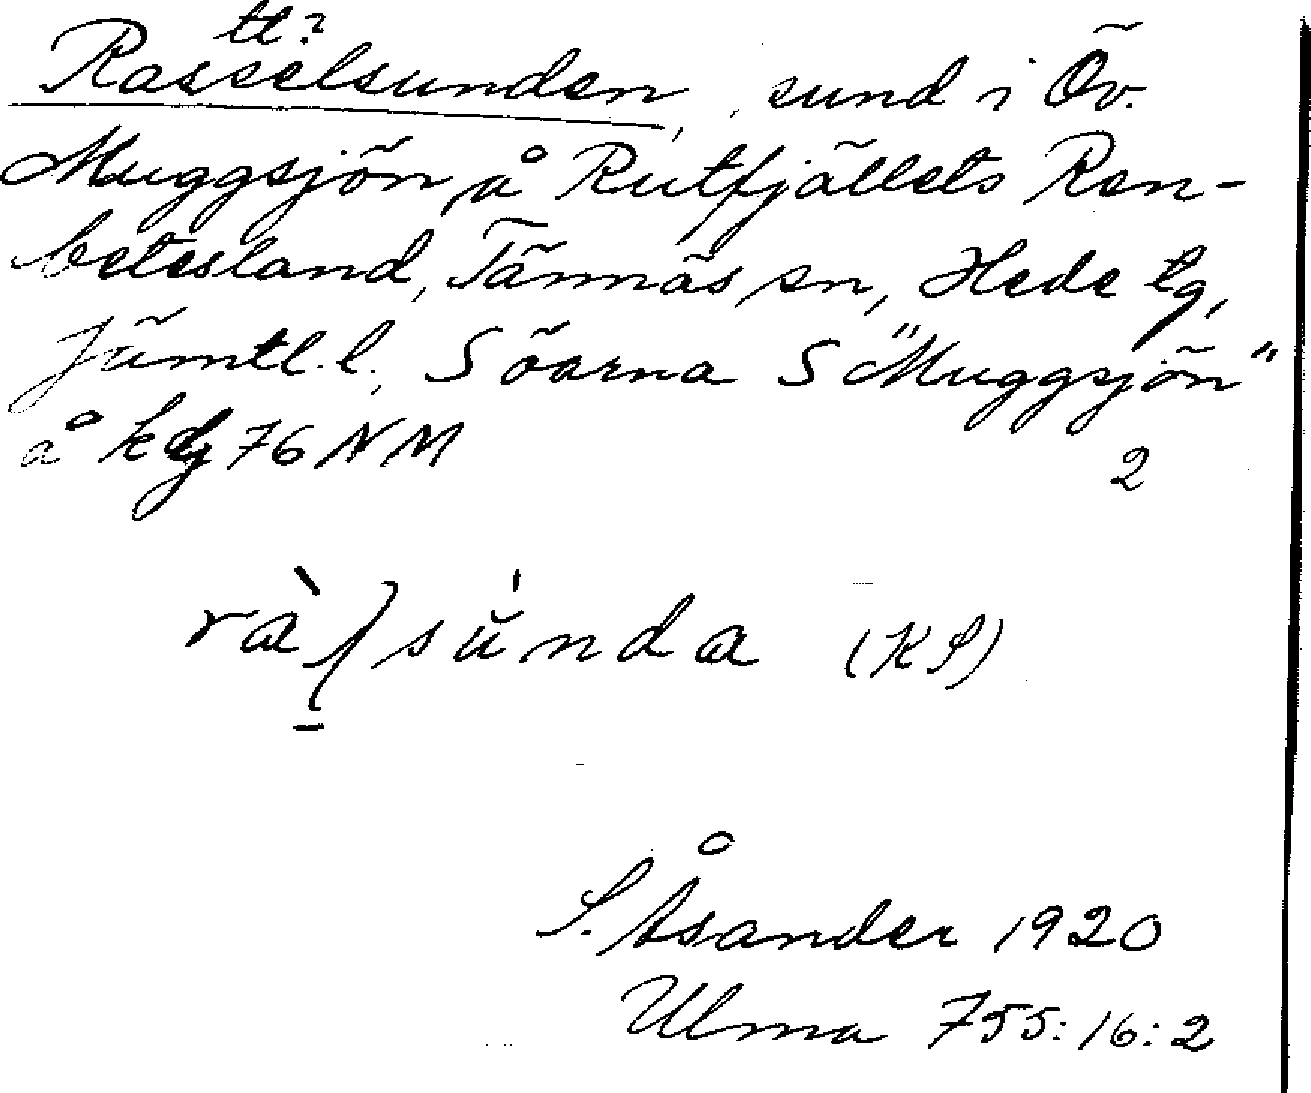 tt?
Rasselsunden, sund i Öv.
Muggsjön å Rutfjällets Ren-
betesland, Tännäs sn, Hede tg,
Jämtl. l., S öarna S "Muggsjön"
å kbl 76 NM 2
sŭnda (KS)
S. Åsander 1920
Ulma 755:16:2